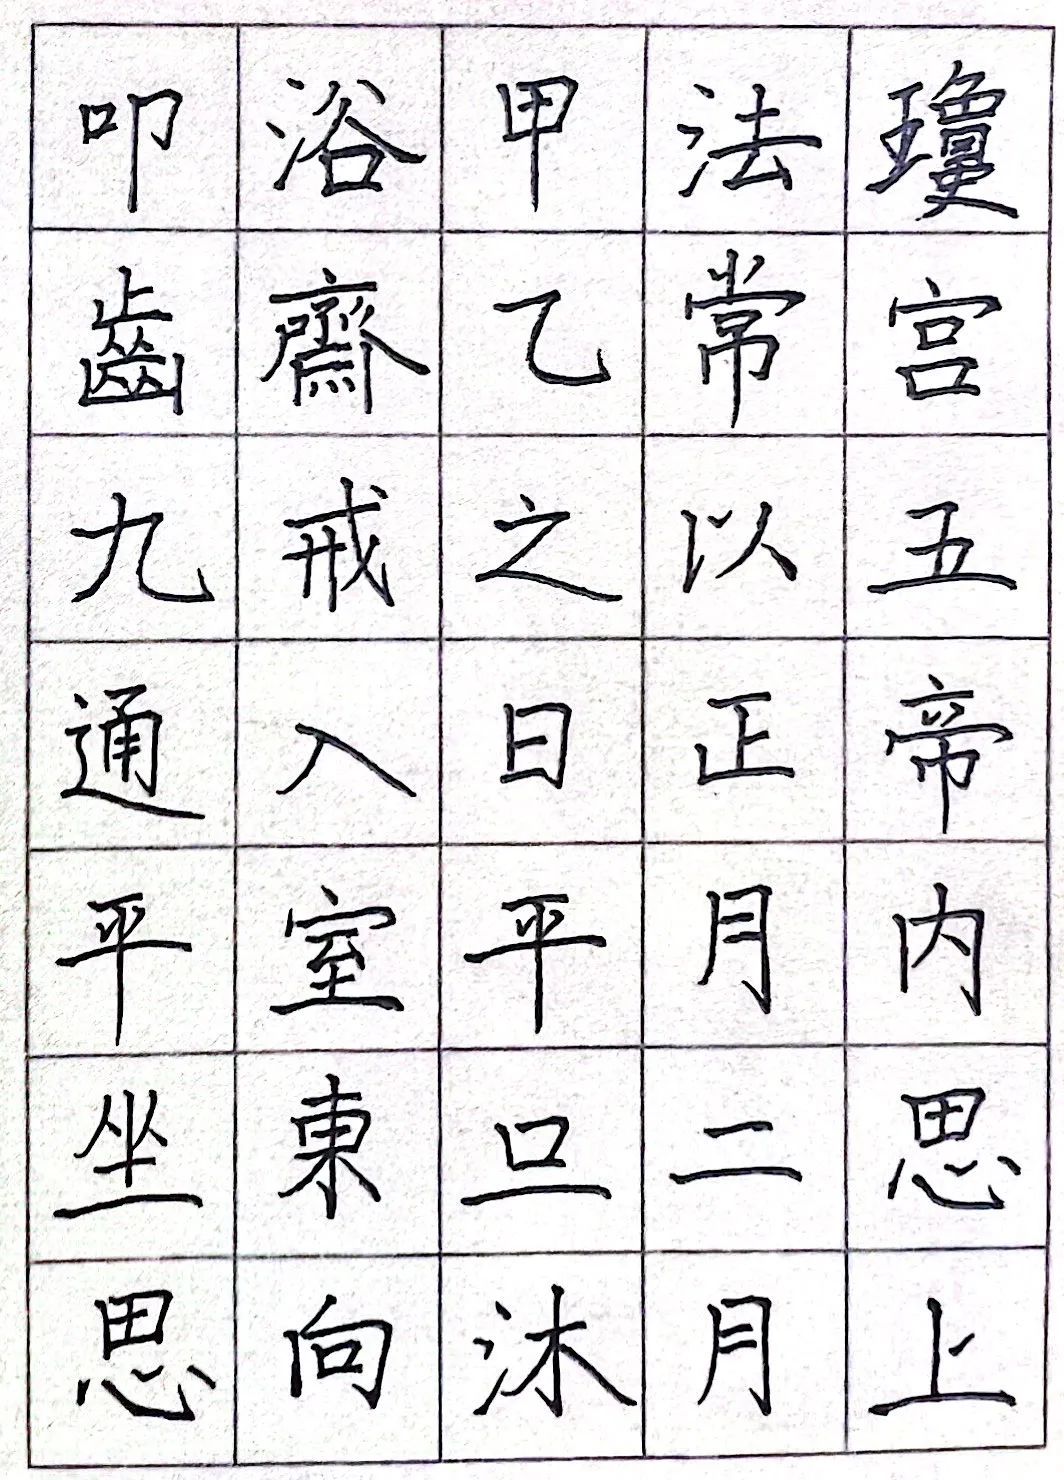 瓊宫五帝内思上
法常以正月二月
甲乙之日平旦沐
浴齋戒入室東向
叩齒九通平坐思